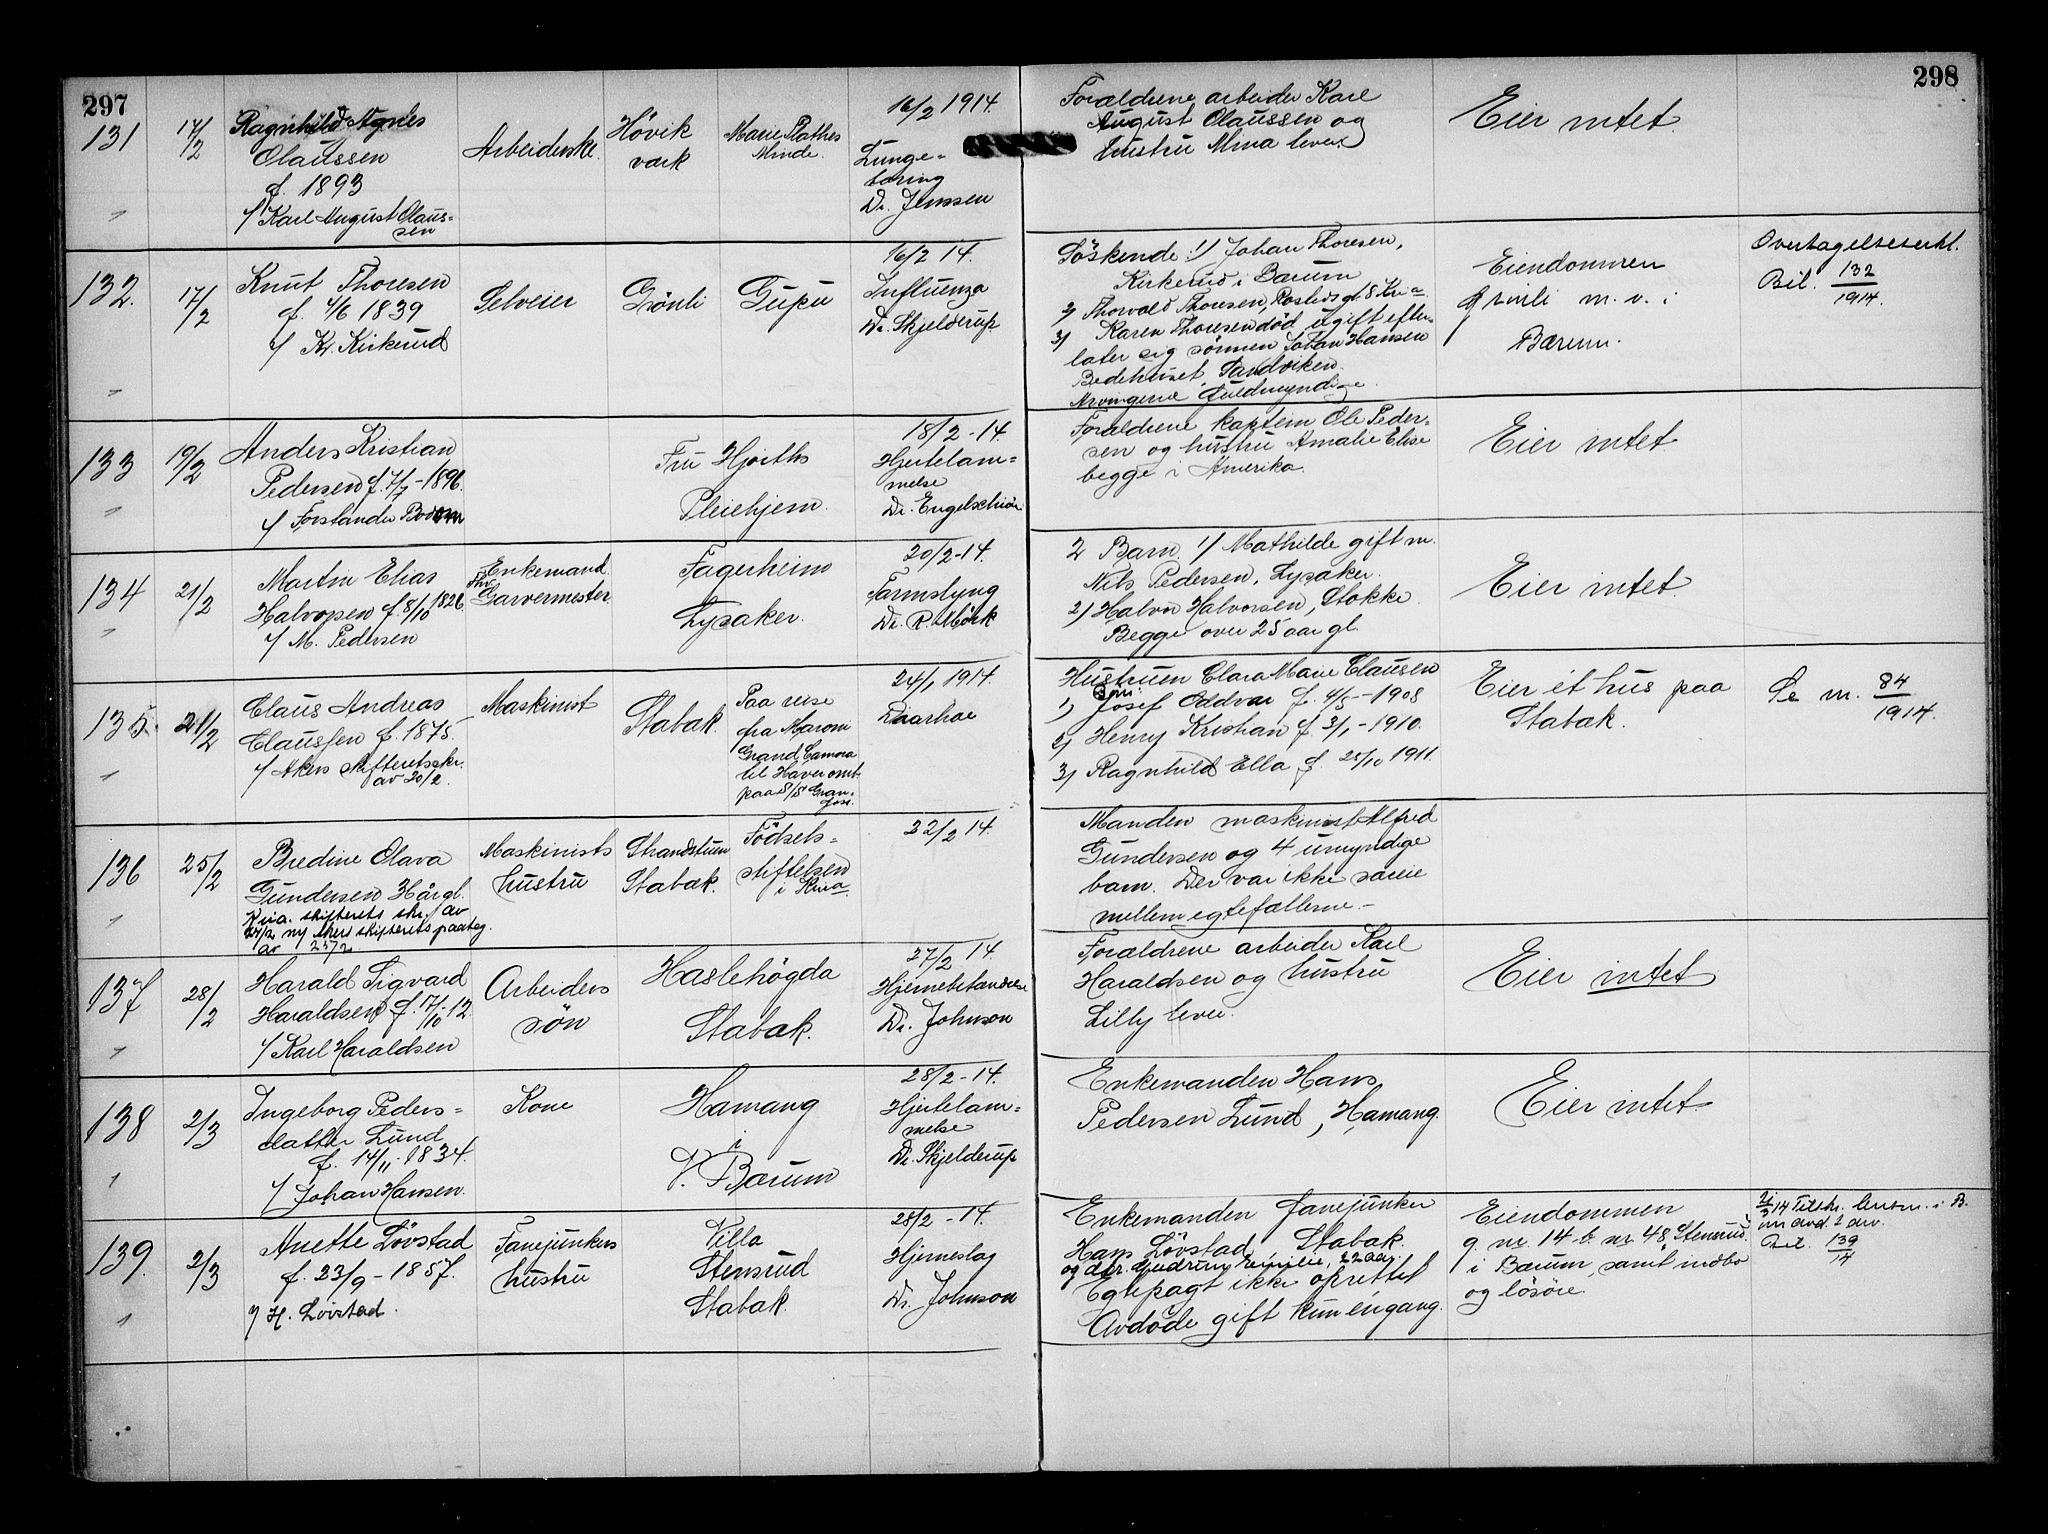 297
298
131
17/2
Ragnhild Agnes
Olaussen
f. 1893
v/ Karl August Olaus-
sen
Arbeiderske.
Hövik
værk
Marie Plathes
Minde.
16/2 1914.
Lunge-
tæring
Dr. Jenssen
Forældrene arbeider Karl
August Olaussen og
hustru Mina lever.
Eier intet.
132.
17/2
Knut Thoresen
f. 4/6 1839
v/ Kr. Kirkerud
Selveier
Grönli
Gupu
16/2 14.
Influenza
Dr. Skjelderup
Söskende: 1) Johan Thoresen,
Kirkerud i Bærum
2) Thorvald Thoresen, Rosteds gt. 8 Kr.a
3) Karen Thoresen död ugift efter-
later sig sönnen Johan Hansen
Bedehuset, Sandviken.
Arvingerne fuldmyndige.
Eiendommen
Grönli m. v. i
Bærum.
Overtagelseserkl.
Bil. 132/1914.
133
19/2
Anders Kristian
Pedersen f. 7/7-1896.
v/ Forstander Bodom
Fru Hjorths
Pleiehjem.
18/2-14.
Hjertelam-
melse
Dr. Engelschiön
Forældrene kaptein Ole Peder-
sen og hustru Amalie Elise
begge i Amerika.
Eier intet
134
21/2
Martin Elias
Halvorsen f. 8/10 1826.
v/ M. Pedersen
Enkemand.
Fhv.
Garvermester.
Fagerheim
Lysaker.
20/2-14.
Tarmslyng
Dr. R. Mörk
2 Barn. 1) Mathilde gift m.
Nils Pedersen, Lysaker.
2) Halvor Halvorsen, Stokke
Begge over 25 aar gl.
Eier intet
135
21/2
Claus Andreas
Claussen f. 1875.
v/ Akers skifteretsskr.
av 20/2.
Maskinist
Stabak.
Paa reise
fra
Grand Camora
til
paa S/S
24/1 1914.
Hustruen Clara Marie Clausen
Barn:
1) Josef Oddvar f. 4/5-1908
2) Henry Kristian f. 3/1-1910.
3) Ragnhild Ella f. 25/10 1911.
Eier et hus paa
Stabak.
Se nr. 84/1914.
136
25/2
Bredine Olava
Gundersen
Kria. skifterets skr. av
Akers skifterets paateg.
av 25/2
Maskinists
hustru
Strandstuen
Stabak.
Födsels-
stiftelsen
i Kria
22/2 14.
Manden maskinist Alfred
Gundersen og 4 umyndige
barn. Der var ikke særeie
mellem egtefællerne.-
137
28/2
Harald Sigvard
Haraldsen f. 17/10-12
v/ Karl Haraldsen
Arbeiders
sön
Haslehögda
Stabak.
27/2 14.
Hjernebetændelse
Dr. Johnson
Forældrene arbeider Karl
Haraldsen og hustru
Lilly lever.
Eier intet
138
2/3
Ingeborg Peders-
datter Lund
f. 14/11-1834.
v/ Johan Hansen.
Kone
Hamang
i
V. Bærum
28/2-14.
Hjertelam-
melse
Dr. Skjelderup
Enkemanden Hans
Pedersen Lund, Hamang.
Eier intet
139.
2/3
Anette Lövstad
f. 23/9-1857.
v/ H. Lövstad.
Fanejunkers
hustru
Villa
Stensrud
Stabak.
28/2-14.
Hjerneslag
Dr. Johnson
Enkemanden fanejunker
Hans Lövstad, Stabak.
og dtr. Gudrun Emilie, 22 aar.
Egtepagt ikke oprettet
Avdöde gift kun engang.
Eiendommen
g. nr. 14 b. nr. 48 Stensrud.
i Bærum, samt indbo
og lösöre
Bil. 139/14